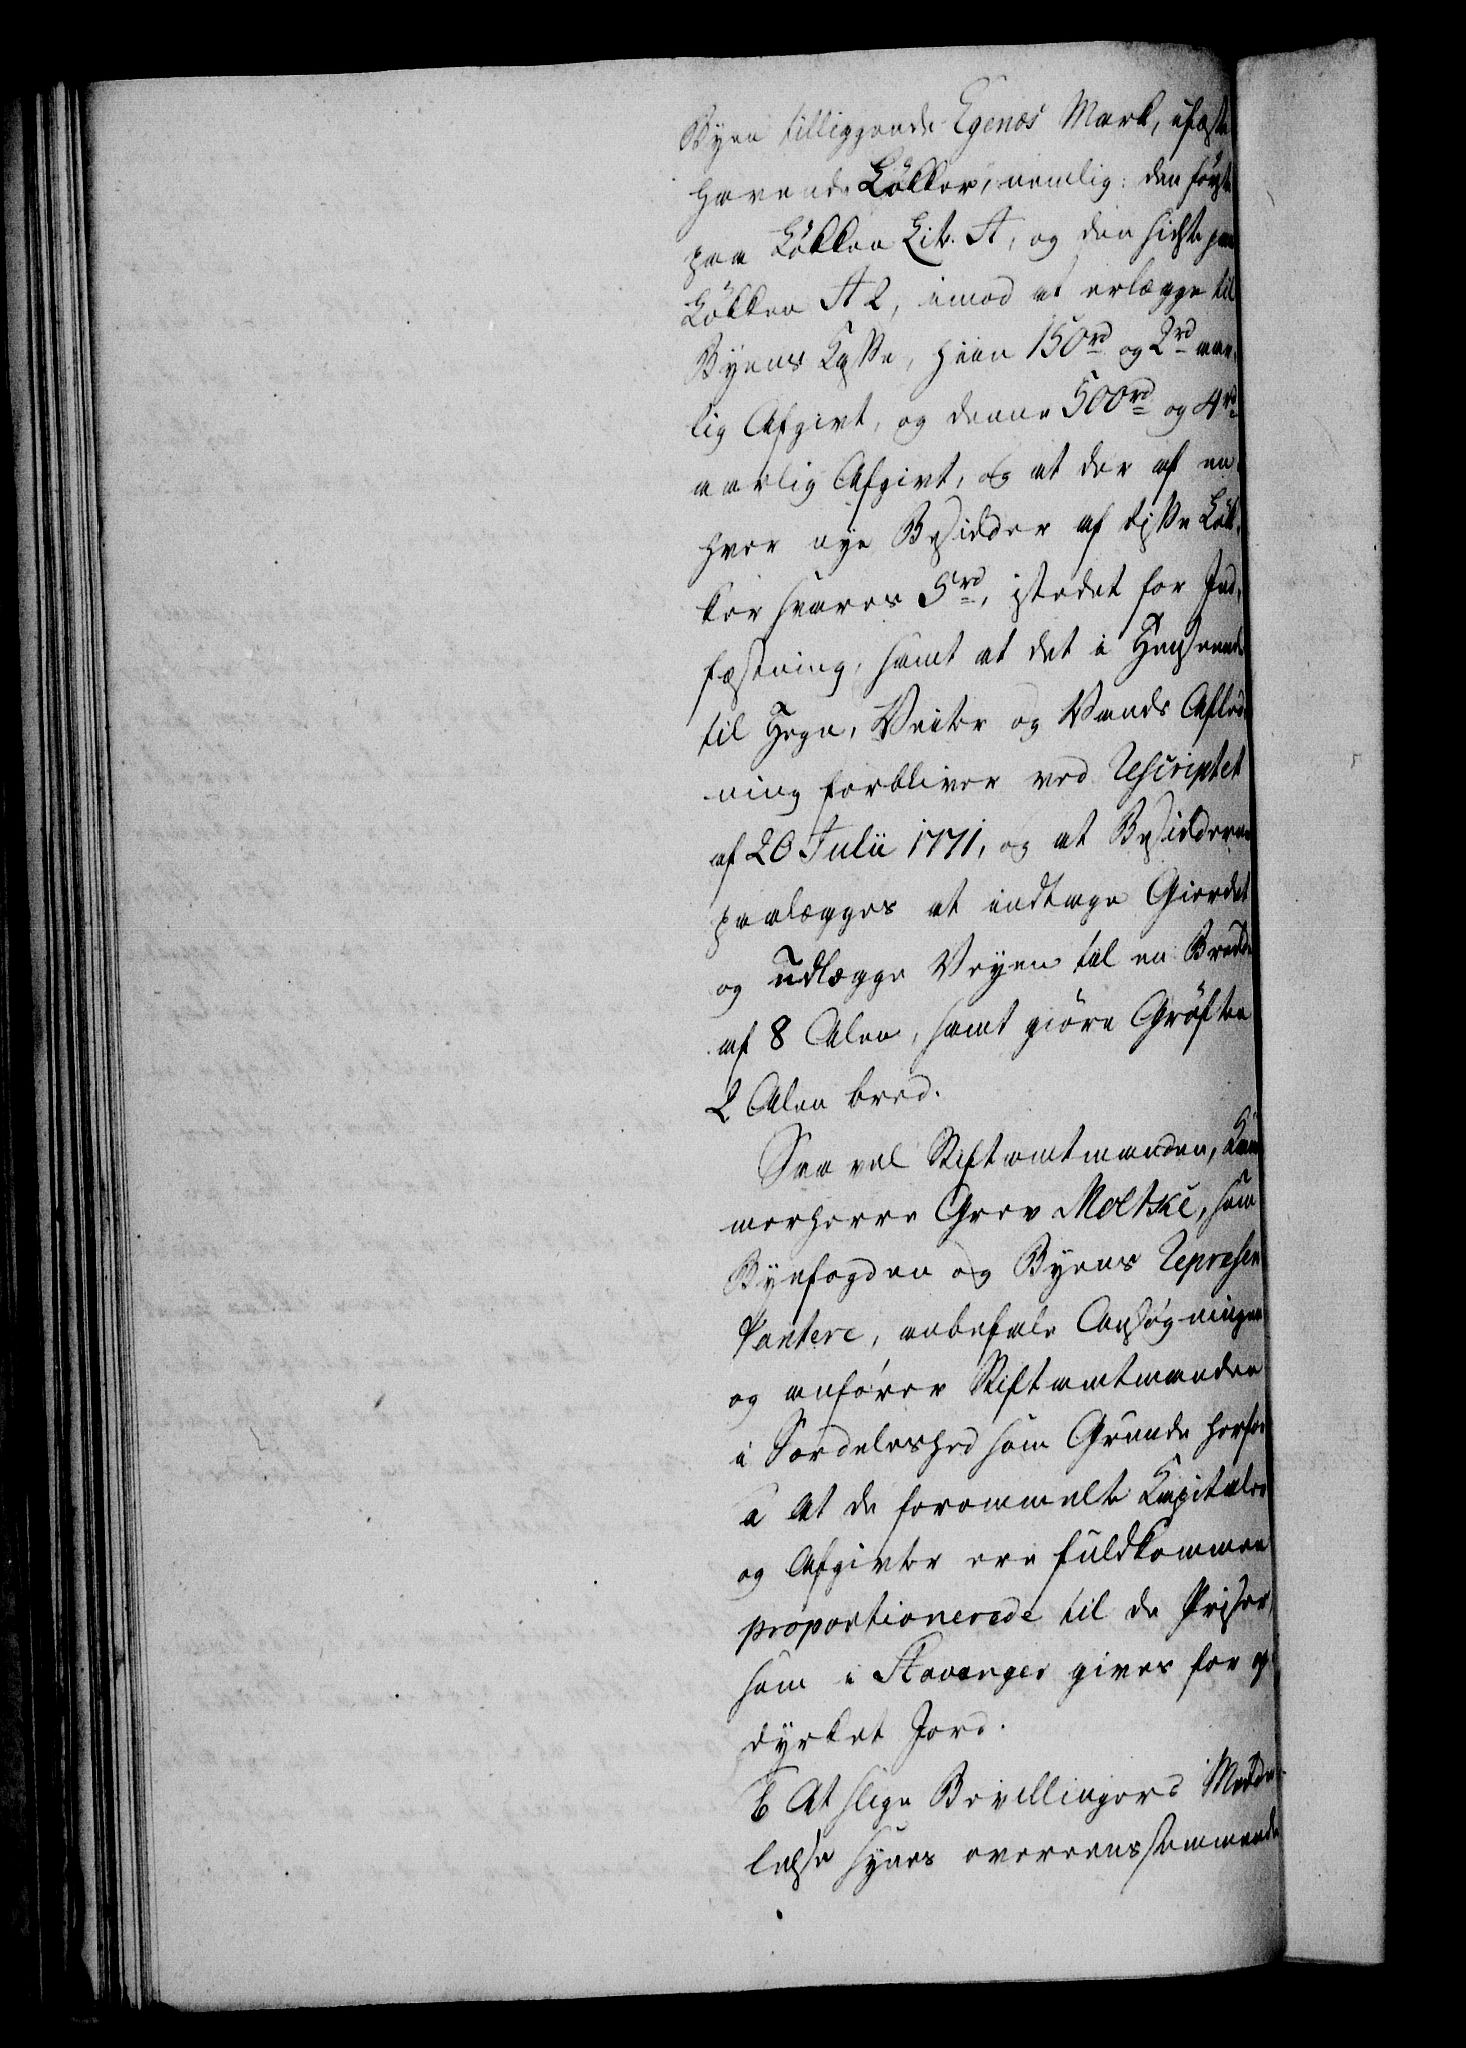 Byen tilliggende Egenæs Mark, i fæste
havende Løkker, nemlig: den første
paa Løkken Lit. A, og den sidste paa
Løkken A 2, imod at erlægge til
Byens Kasse, hiin 150 rd og 2 rd aar-
lig Afgivt, og denne 500 rd og 4 rd
aarlig Afgivt, og at der af en-
hver nye Besidder af disse Løk-
ker svares 5 rd, istedet for Ind-
fæstning, samt at det i Henseende
til Hegn, Veiter og Vands Afled-
ning forbliver ved Rescriptet
af 20 Julii 1771, og at Besidderne
paalægges at indtage Gierdet
og udlægge Veyen til en Bredde
af 8 Alen, samt giöre Gröften
2 Alen bred.
Saavel Stiftamtmanden, Kam-
merherre Grev Moltke, som
Byefogden og Byens Repræsen-
tantere, anbefale Ansøgningen
og anfører Stiftamtmanden
i Særdeleshed som Grunde herfor
a At de forommelte Kapitaler
og Afgivter ere fuldkommen
proportionerede til de Priser,
som i Stavanger gives for op-
dyrket Jord.
b At slige Bevillingers Medde-
lelse synes overeensstemmende